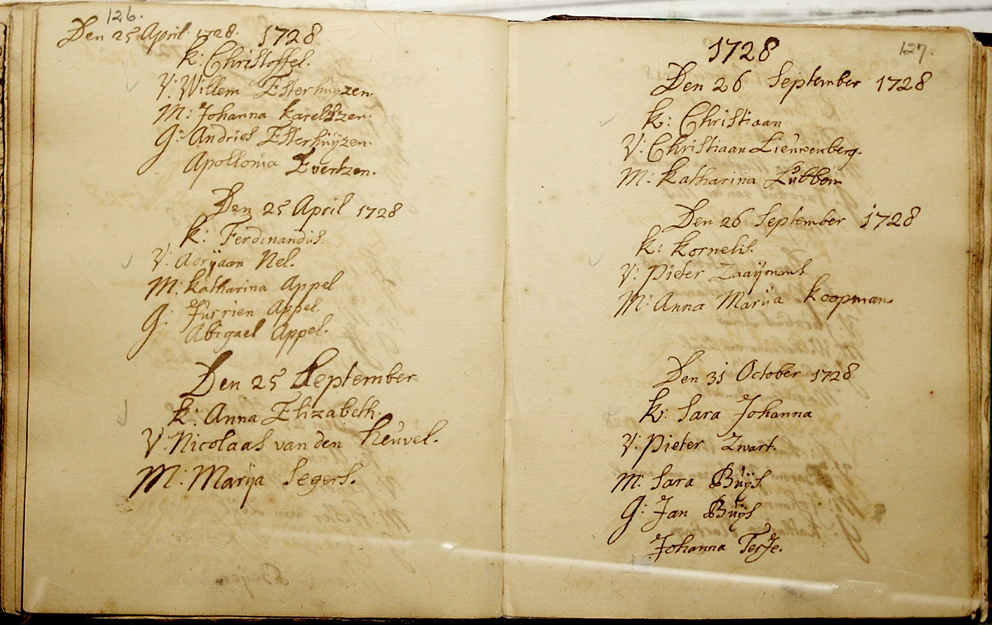 126.
Den 25 April 1728. 1728
k: Christoffel.
V: Willem Esterhuyzen.
M: Johanna Karelszen.
G: Andries Esterhuyzen.
Apollonia Evertzen.
Den 25 April 1728
k: Ferdinandus.
V: Adrijaan Nel.
M: Katharina Appel
G: Jurrien Appel.
Abigael Appel.
Den 25 September
k: Anna Elizabeth.
V: Nicolaas van den Heuvel.
M: Marija Segers.
127.
1728
Den 26 September 1728
k: Christiaan
V: Christiaan Lieuwenberg.
M: Katharina Lubbon
Den 26 September 1728
k: Kornelis.
V: Pieter Zaaymans
M: Anna Marija Koopman.
Den 31 October 1728
k: Sara Johanna
V: Pieter Zwart.
M: Sara Buijs.
G: Jan Buijs
Johanna